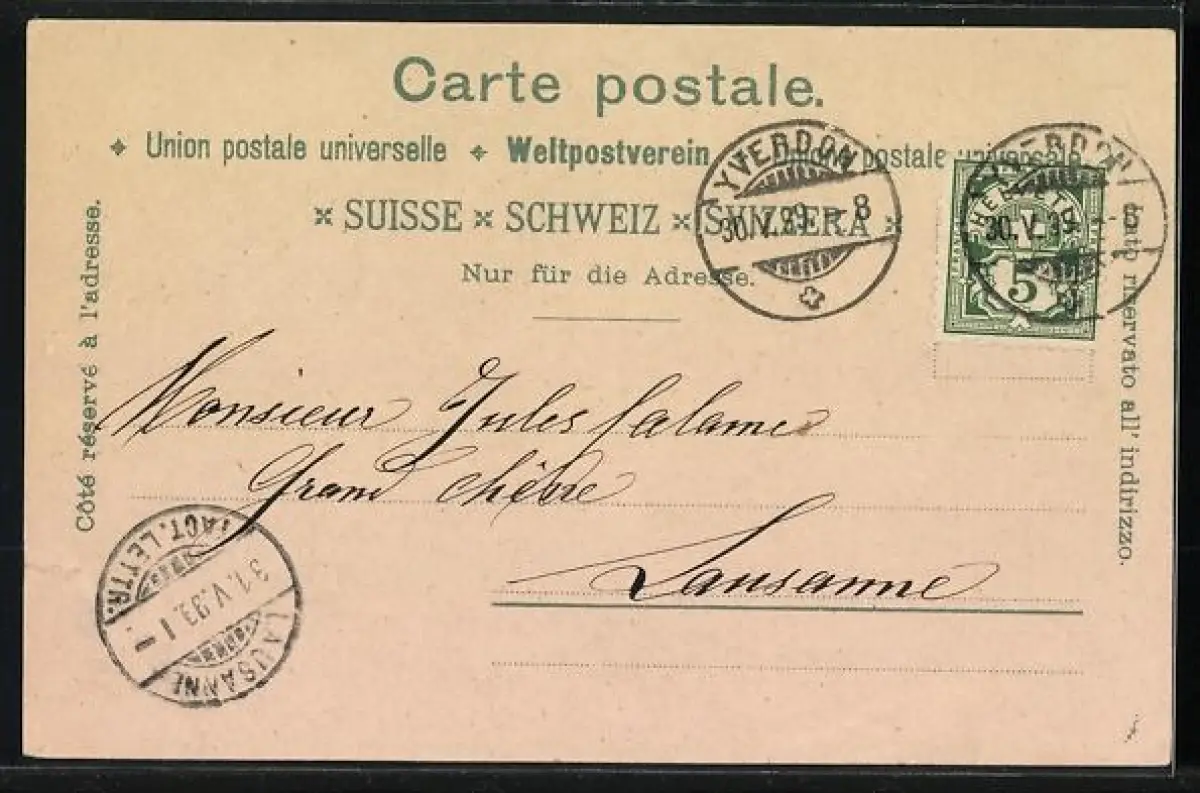 Carte postale.
Union postale universelle Weltpostverein Unione postale universale
SUISSE SCHWEIZ SVIZZERA
Nur für die Adresse.
Côté réservé à l'adresse.
lato riservato all' indirizzo.
YVERDON
30.V.99.-8
YVERDON
30.V.99.-8
HELVETIA
5
Monsieur Jules Calame
Grand Chêne
Lausanne
31.V.99.1-
LAUSANNE